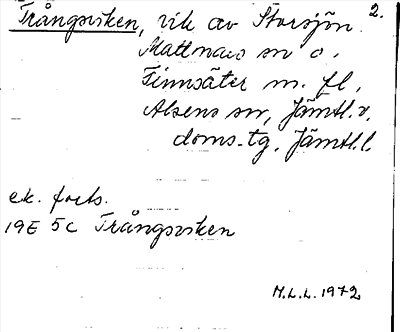 Trångsviken, vik av Storsjön 2.
Mattmars sn o.
Finnsäter m. fl,
Alsens sn, Jämtl. v.
doms.tg, Jämtl. l.
ek. forts.
19E 5c Trångsviken
M.L.L. 1972